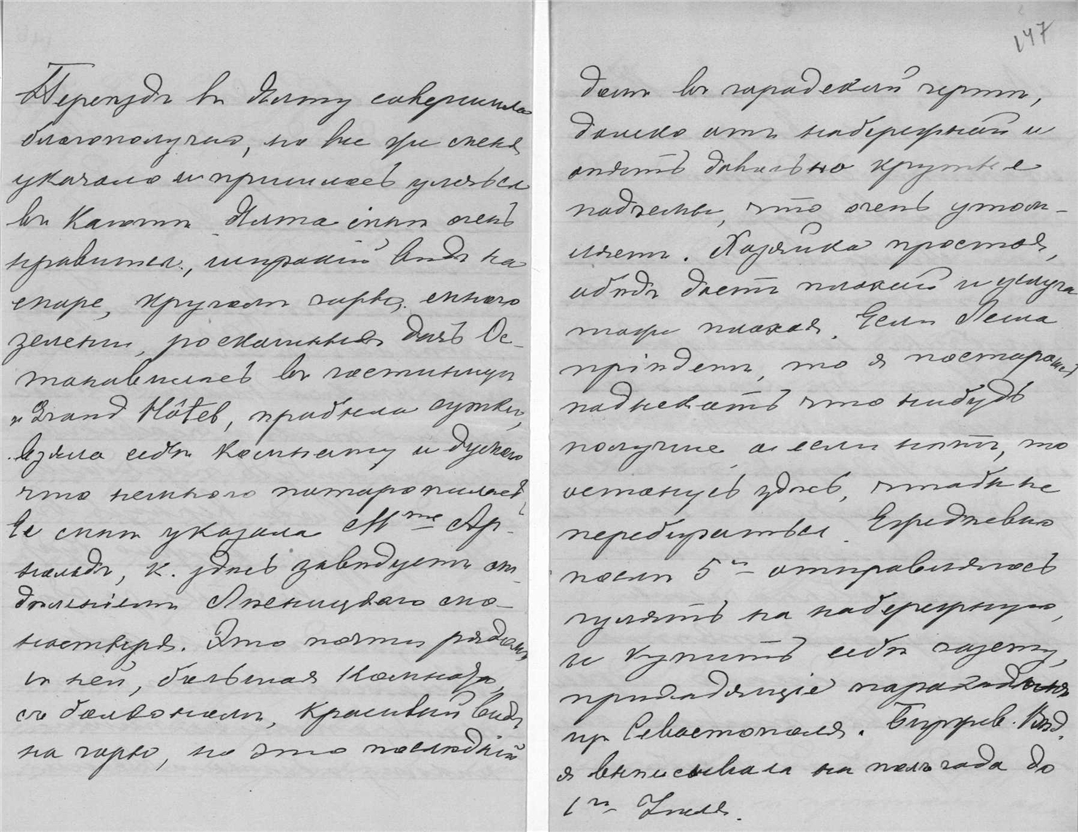 Переѣздъ въ Ялту совершила
благополучно, но все же меня
укачало и пришлось улечься
въ каютѣ. Ялта мнѣ очень
нравится, широкій видъ на
море, кругомъ горы, много
зелени, роскошныя дачи. Ос-
тановилась въ гостиницѣ
„Grand Hôtel, пробыла сутки,
взяла себѣ комнату и думаю
что немного поторопилась,
Ее мнѣ указала M-me Ар-
нольди, к. здѣсь завѣдуетъ от-
дѣленіемъ мо-
настыря. Это почти рядомъ
съ ней, большая комната
съ балкономъ, красивый видъ
на горы, но это послѣдній
147
домъ въ городской чертѣ,
далеко отъ набережной и
опять довольно крутые
подъемы, что очень утом-
ляетъ. Хозяйка простая,
обѣдъ даетъ плохой и услуга
тоже плохая. Если Леша
пріѣдетъ, то я постараюсь
подыскать что нибудь
получше, а если нѣтъ, то
останусь здѣсь, чтобы не
перебираться. Ежедневно
послѣ 5 ч отправляюсь
гулять на набережную,
и купить себѣ газету,
приходящіе пароходомъ
изъ Севастополя. Биржев. Вѣд.
я выписывала на полгода до
1го Іюля.